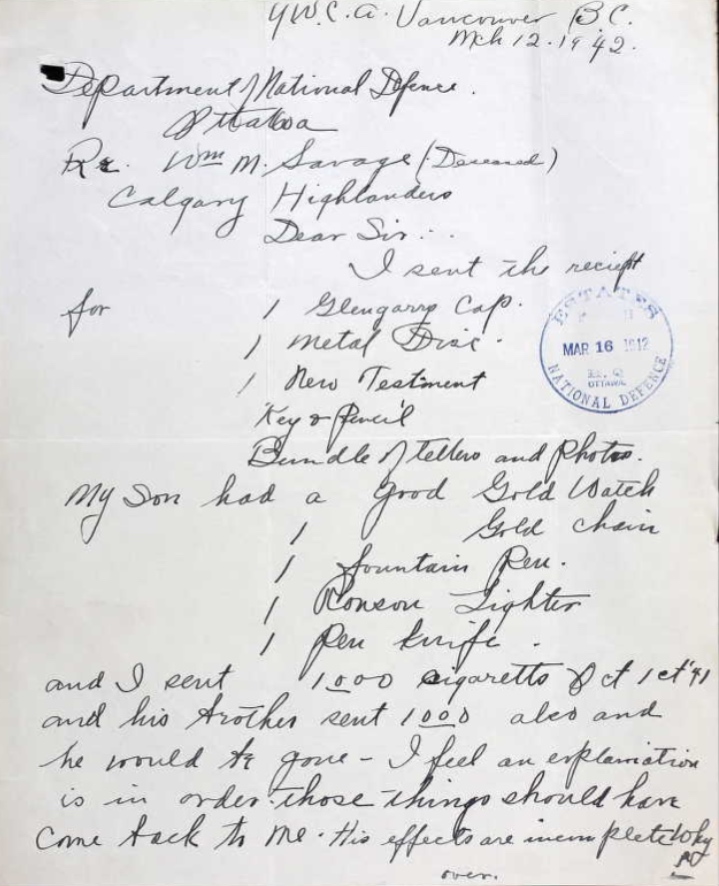 Y.W.C.A. Vancouver B.C.
Mch 12. 1942.
Department of National Defence.
Ottawa
Re. Wm M. Savage (Deceased)
Calgary Highlanders
Dear Sir:
I sent the reciept
for 1 Glengarry Cap.
1 Metal Disc.
1 New Testment
Key & Pencil
Bundle of letters and Photos.
ESTATES
MAR 16 1942
H. Q.
OTTAWA
NATIONAL DEFENCE
My Son had a Good Gold Watch
1 Gold chain
1 fountain Pen.
1 Ronson Lighter
1 Pen knife.
and I sent 1000 cigaretts Oct 1st '41
and his brother sent 1000 also and
he would be gone - I feel an explanation
is in order. those things should have
come back to me. His effects are incomplete Why
over.